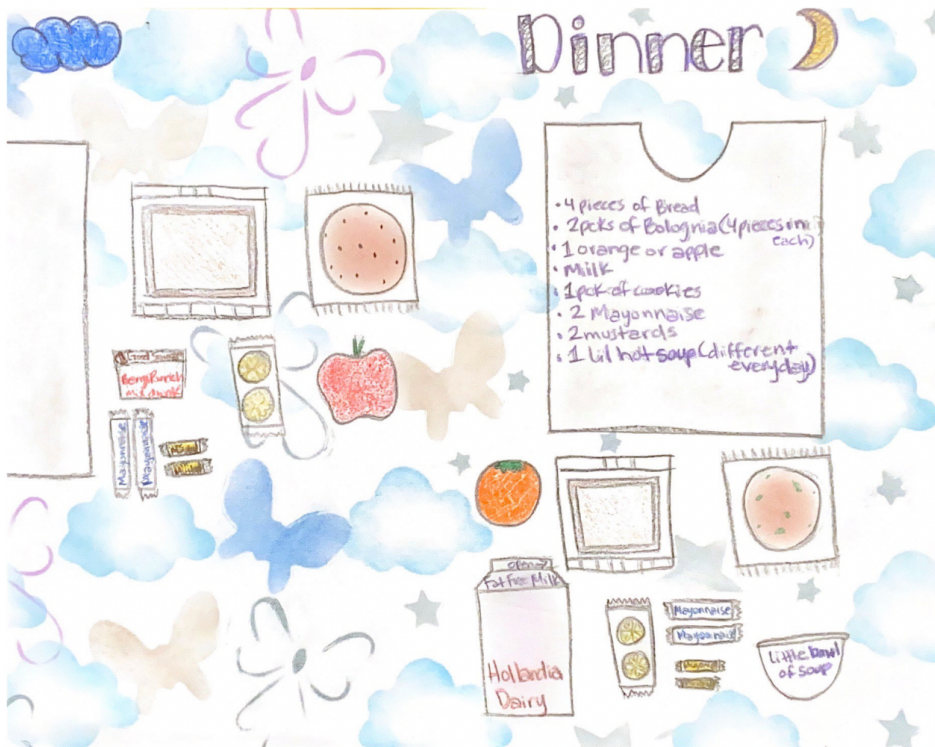 Dinner
• 4 pieces of Bread
• 2pcks of Bolognia (4 pieces in
each)
• 1 orange or apple
• Milk
• 1pck of cookies
• 2 Mayonnaise
• 2 mustards
• 1 Lil hot soup (different
everyday)
Berry Punch
Mayonnaise
Mayonnaise
open
Fat Free Milk
Hollandia
Dairy
Mayonnaise
Mayonnaise
Little bowl
of soup